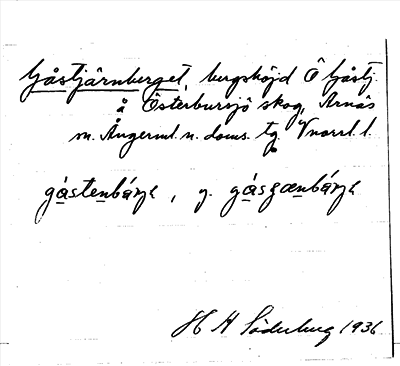 Gåstjärnberget, bergshöjd Ö Gåstj.
å Österbursjö skog, Arnäs
sn. Ångerml. n. doms. tg. Vnorrl. l.
gástenbárjɛ, y. gásɟænbárjɛ
H A Söderberg 1936